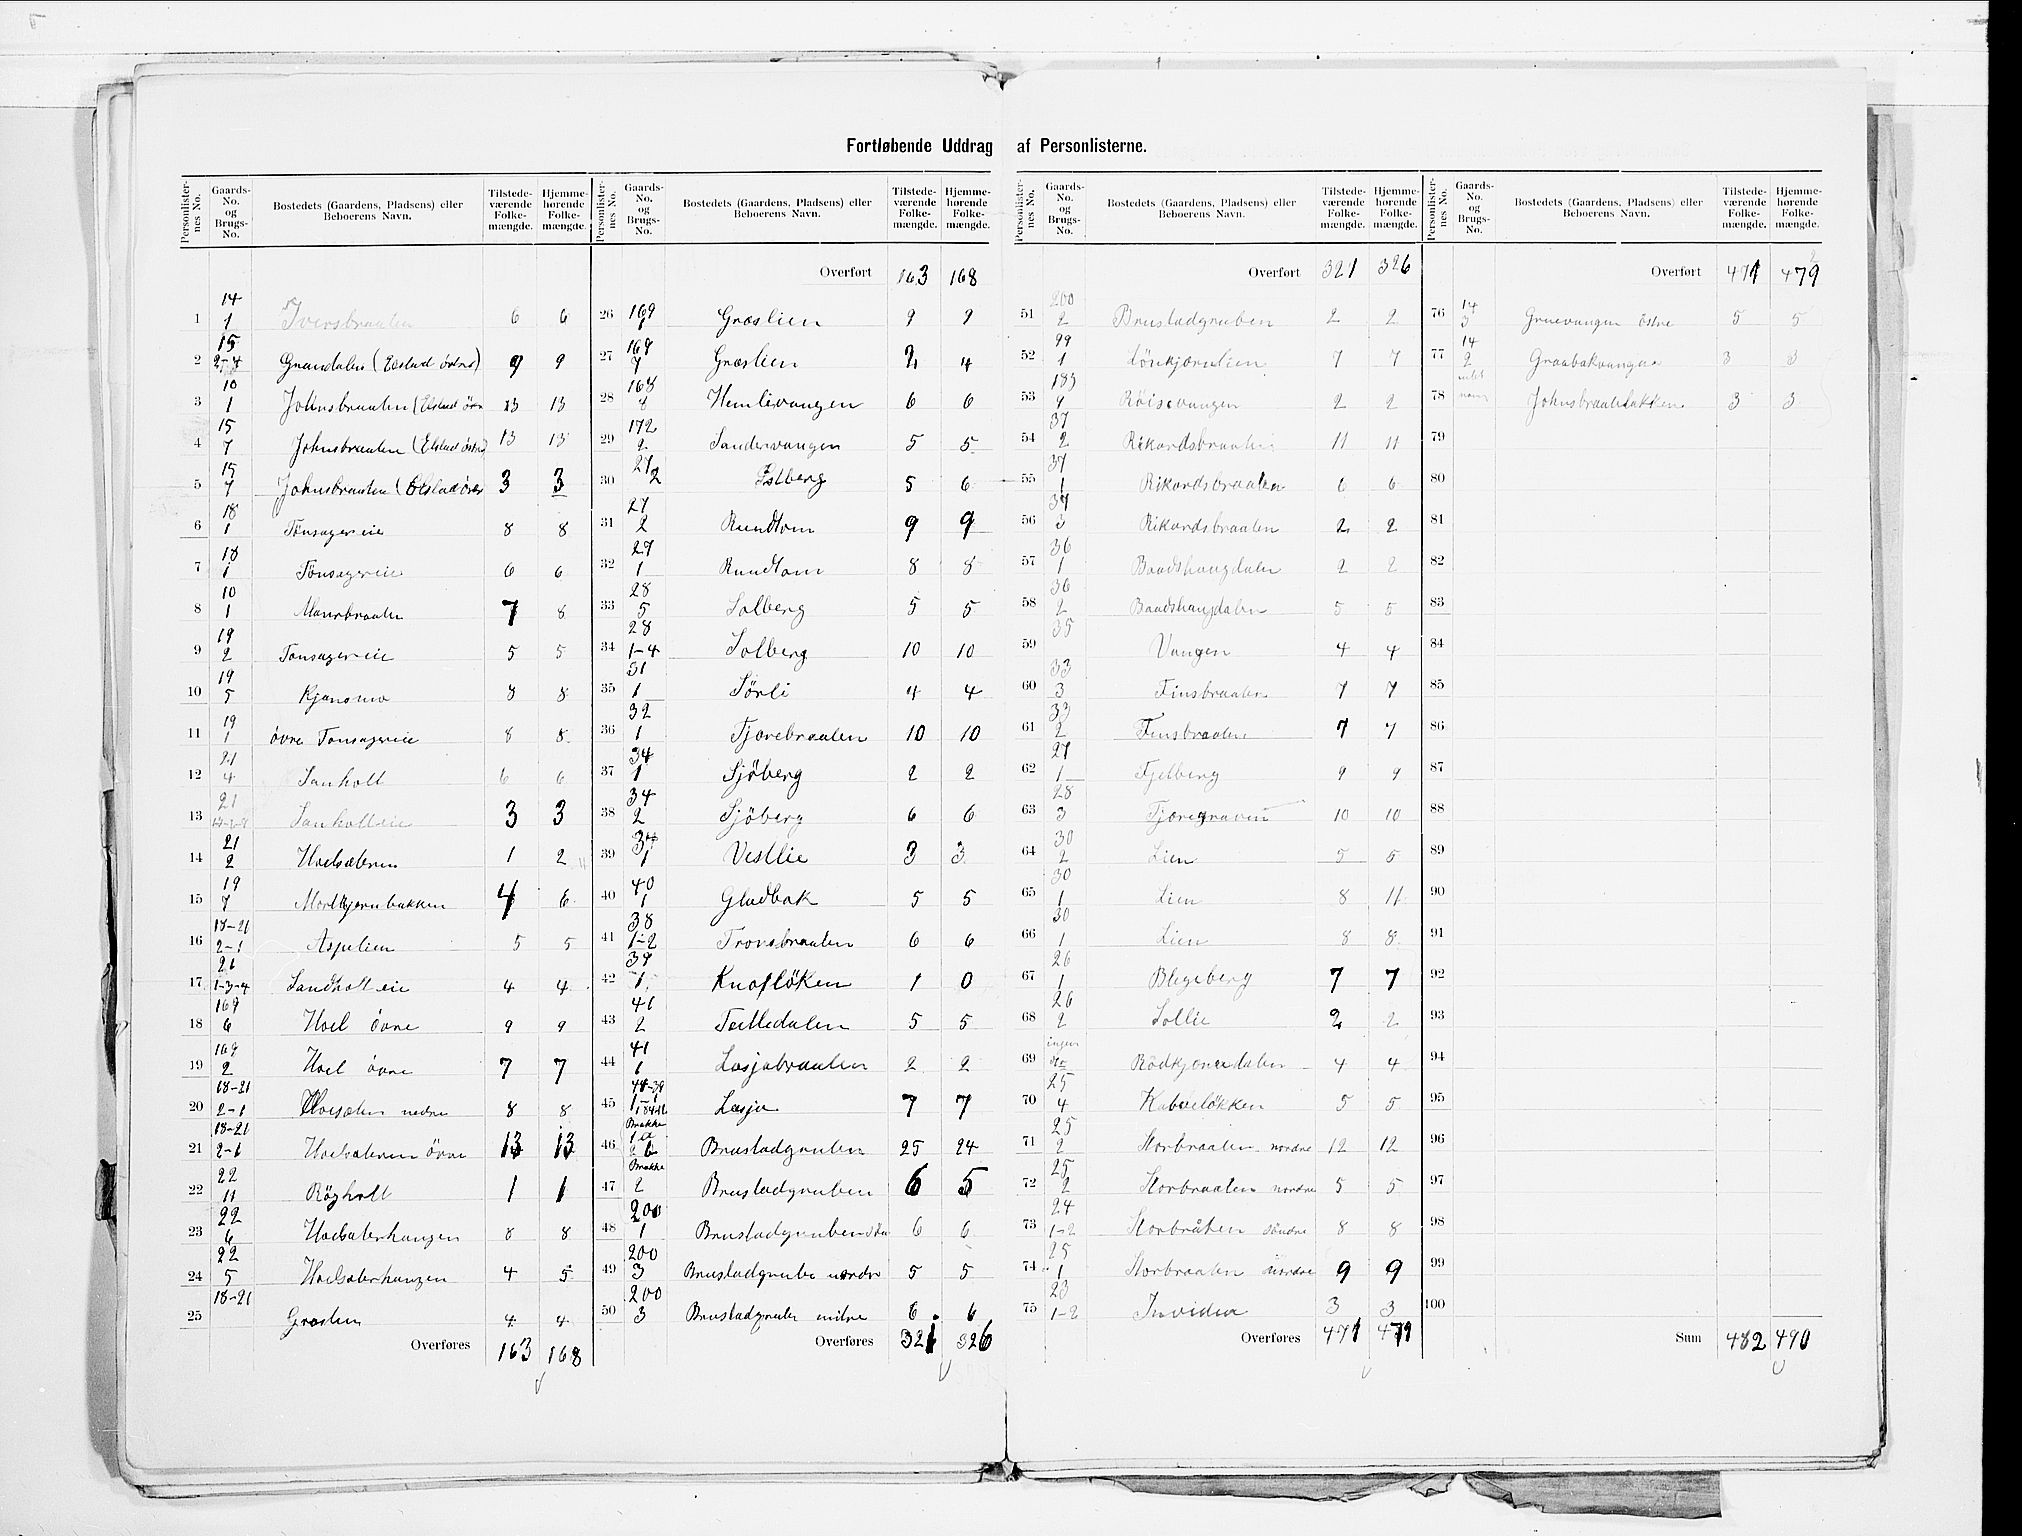 Fortløbende Uddrag af Personlisterne.
Personlister-nes No. Gaards-No. og Brugs-No. Bostedets (Gaardens, Pladsens) eller Beboerens Navn. Tilstede-værende Folke-mængde. Hjemme-hørende Folke-mængde.
1 14 1 Iversbraaten 6 6
2 15 Grandalen (Elstad østre) 9 9
3 10 1 Johnsbraaten (Elstad 13 13
4 15 7 Johnsbraaten (Elstad østre) 13 13
5 15 7 Johnsbraaten (Elstad 3 3
6 18 1 Tønsagereie 8 8
7 18 1 Tønsagereie 6 6
8 10 1 7 8
9 19 2 Tønsagereie 5 5
10 19 5 Kjønsmo 8 8
11 19 1 øvre Tonsagereie 8 8
12 21 4 Sanholt 6 6
13 21 Sanholteie 3 3
14 21 2 Hoelsæteren 1 2
15 19 7 4 6
16 18-21 2-1 Aspelien 5 5
17 21 1-3-4 Sandholteie 4 4
18 169 6 Hoel øvre 9 9
19 169 2 Hoel øvre 7 7
20 18-21 2-1 nedre 8 8
21 18-21 2-1 Hoelsæteren øvre 13 13
22 22 11 Røyholt 1 1
23 22 6 Hoelsæterhaugen 8 8
24 22 5 Hoelsæterhaugen 4 5
25 18-21 Græslien 4 4
Overføres 163 168
Personlister-nes No. Gaards-No. og Brugs-No. Bostedets (Gaardens, Pladsens) eller Beboerens Navn. Tilstede-værende Folke-mængde. Hjemme-hørende Folke-mængde.
Overført 163 168
26 169 Græslien 9 9
27 169 7 Græslien 2 4
28 168 8 Hemlivangen 6 6
29 172 2 Sandervangen 5 5
30 27 2 5 6
31 27 2 Rundtom 9 9
32 27 1 Rundtom 8 8
33 28 5 Solberg 5 5
34 28 1-4 Solberg 10 10
35 31 1 Sørli 4 4
36 32 1 Tjærebraaten 10 10
37 34 1 Sjøberg 2 2
38 34 2 Sjøberg 6 6
39 1 Vestlie 3 3
40 40 1 Gladbak 5 5
41 38 1-2 Tronsbraaten 6 6
42 39 1 Knofløken 1 0
43 41 2 Teitledalen 5 5
44 41 1 Lasjabraaten 2 2
45 Lasja 7 7
46 Brakke Brustadgruben 25 24
47 Brakke 2 Brustadgruben 6 5
48 200 1 Brustadgruben 6 6
49 200 3 Brustadgrube nordre 5 5
50 200 3 Brustadgruben midre 6 6
Overføres 321 326
Personlister-nes No. Gaards-No. og Brugs-No. Bostedets (Gaardens, Pladsens) eller Beboerens Navn. Tilstede-værende Folke-mængde. Hjemme-hørende Folke-mængde.
Overført 321 326
51 200 2 Brustadgruben 2 2
52 99 1 7 7
53 183 Røisevangen 2 2
54 37 2 Rikardsbraaten 11 11
55 37 1 Rikardsbraaten 6 6
56 37 3 Rikardsbraaten 2 2
57 36 1 Baadshaugdalen 2 2
58 36 2 Baadshaugdalen 5 5
59 35 Vangen 4 4
60 33 3 Finsbraaten 7 7
61 33 2 Finsbraaten 7 7
62 27 1 Fjelberg 9 9
63 28 3 Tjæregraven 10 10
64 30 2 Lien 5 5
65 30 1 Lien 8 11
66 30 1 Lien 8 8
67 26 1 Blegeberg 7 7
68 26 2 Sollie 2 2
69 ingen No 4 4
70 25 4 Kabbeløkken 5 5
71 25 2 Storbraaten nordre 12 12
72 25 2 Storbraaten nordre 5 5
73 24 1-2 Storbråten søndre 8 8
74 25 1 Storbraaten nordre 9 9
75 23 1-2 3 3
Overføres 471 479
Personlister-nes No. Gaards-No. og Brugs-No. Bostedets (Gaardens, Pladsens) eller Beboerens Navn. Tilstede-værende Folke-mængde. Hjemme-hørende Folke-mængde.
Overført 471 479
76 14 3 Gruevangen østre 5 5
77 14 2 Graabakvangen 3 3
78 Johnsbraatebakken 3 3
79
80
81
82
83
84
85
86
87
88
89
90
91
92
93
94
95
96
97
98
99
100
Sum 482 490